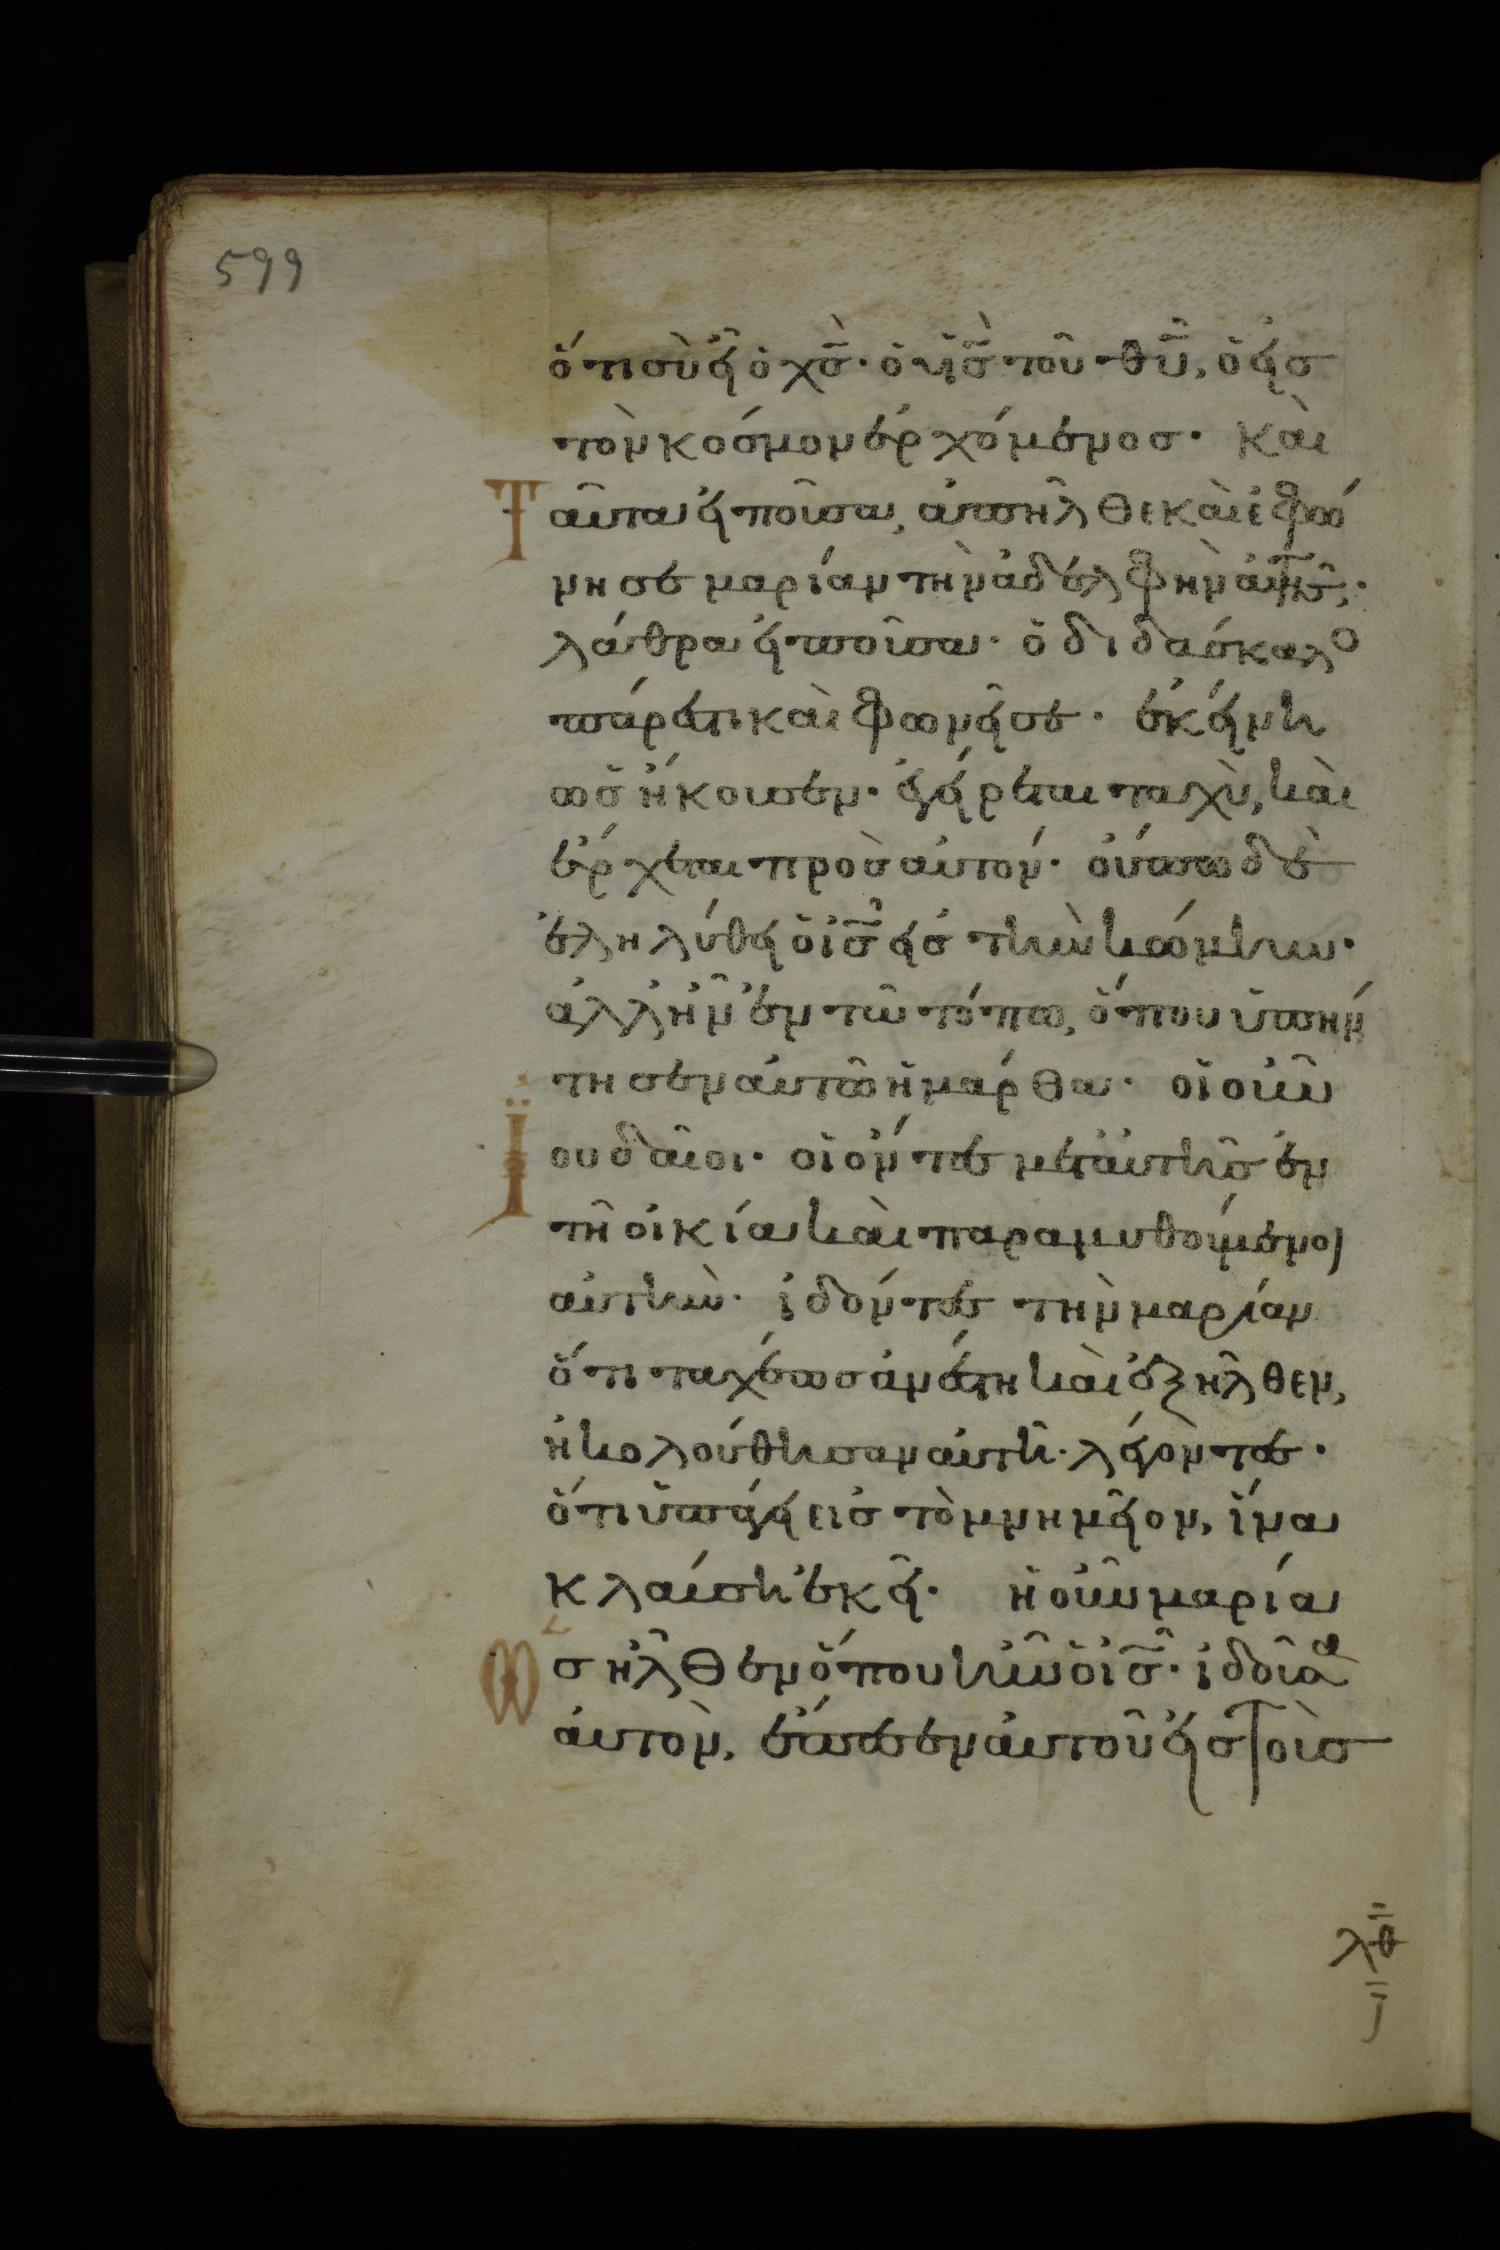 599
ὅτι σὺ εἶ ὁ χ̅ς̅· ὁ υἱ̅ς̅ τοῦ θ̅υ̅, ὁ εἰς
τὸν κόσμον ἐρχόμενος· Καὶ
Ταῦτα εἰποῦσα, ἀπῆλθε καὶ ἐφώ
νησε μαρίαμ τὴν ἀδελφὴν αὐτῆς,·
λάθρα εἰποῦσα· ὁ διδάσκαλο
πάρεστι καὶ φωνεῖ σε· ἐκείνη
ὡς ἤκουσεν· ἐγείρεται ταχὺ, καὶ
ἔρχεται πρὸς αὐτόν· οὔπω δὲ
ἐληλύθει ὁ ι̅ς̅ εἰς τὴν κώμην·
ἀλλ ἦν ἐν τῶ τόπω, ὅπου ὑπήν
τησεν αὐτῶ ἡ μάρθα· οἱ οὖν
Ἰουδαῖοι· οἱ ὄντες μετ αὐτῆς ἐν
τῆ οἰκία καὶ παραμυθούμενοι
αὐτὴν· ἰδόντες τὴν μαρίαμ
ὅτι ταχέως ἀνέστη καὶ ἐξῆλθεν,
ἠκολούθησαν αὐτῆ· λέγοντες·
ὅτι ὑπάγει εἰς τὸ μνημεῖον, ἵνα
κλαύση ἐκεῖ· ἡ οὖν μαρία
Ὡς ἦλθεν ὅπου ἦν ὁ ι̅ς̅· ἰδοῦσα
αὐτὸν, ἔπεσεν αὐτοῦ εἰς τοὺς
λθ